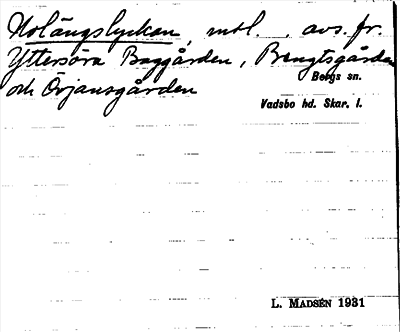 Holängslyckan, mbl. . avs. fr.
Yttersöra Baggården, Brengtsgården
och Örjansgården
Bergs sn.
Vadsbo hd. Skar. l.
L. MADSÉN 1931